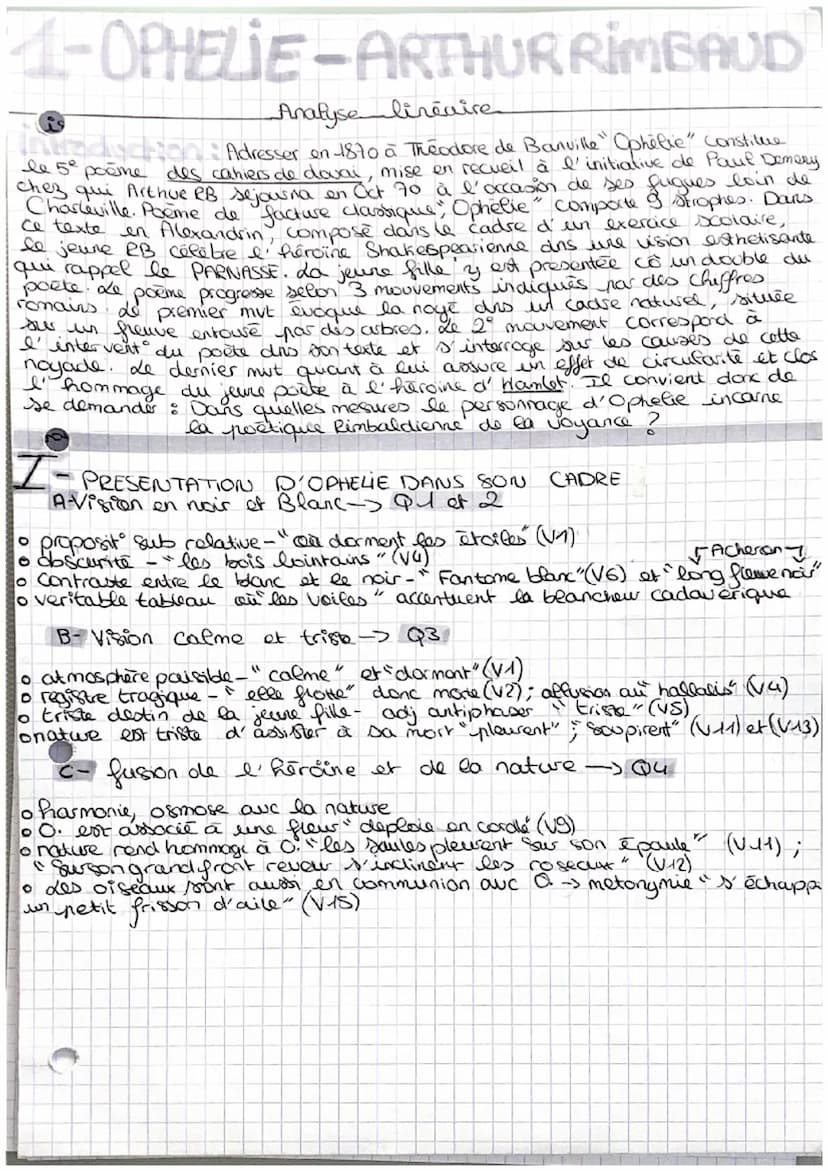 1-OPHELIE-ARTHUR RIMBAUD
Analyse linéaire
introduction : Adresser en 1870 à Théodore de Banville "Ophélie" constitue
le 5e poème des cahiers de douai, mise en recueil à l'initiative de Paul Demeny
chez qui Arthur RB séjourna en Oct 70 à l'occasion de ses fugues loin de
Charleville. Poème de "facture classique", Ophélie" comporte 9 strophes. Dans
ce texte en Alexandrin, composé dans le cadre d'un exercice scolaire,
le jeune RB célèbre l'héroïne Shakespearienne dns une vision esthétisante
qui rappel le PARNASSE. La jeune fille y est présentée cô un double du
poète. Le poème progresse selon 3 mouvements indiqués par des chiffres
romains. Le premier mvt évoque la noyé dns un cadre naturel, située
sur un fleuve entouré par des arbres. Le 2e mouvement correspond à
l'intervent° du poète dns son texte et s'interroge sur les causes de cette
noyade. Le dernier mvt quant à lui assure un effet de circularité et clos
l'hommage du jeune poète à l'héroïne d'Hamlet. Il convient donc de
se demander : Dans quelles mesures le personnage d'Ophélie incarne
la poétique Rimbaldienne de la voyance ?
I- PRESENTATION D'OPHELIE DANS SON CADRE
A-Vision en noir et Blanc-> Q1 et 2
o proposit° sub relative - "où dorment les étoiles" (V1)
o obscurité - "les bois lointains" (V4)
Acheron
o Contraste entre le blanc et le noir - "Fantome blanc"(V6) et "long fleuve noir"
o veritable tableau où "les voiles" accentuent la blancheur cadavérique
B- Vision calme et triste -> Q3
o atmosphère paisible - "calme" et "dorment" (V1)
o registre tragique - "elle flotte" donc morte (V2) ; allusion au "hallalis" (V4)
o triste destin de la jeune fille - adj antiphaser "triste" (V5)
o nature est triste d'assister à sa mort "pleurent" ; "soupirent" (V11) et (V13)
C- fusion de l'héroïne et de la nature -> Q4
o harmonie, osmose avc la nature
o O. est associé à une fleur "déploie en corolle" (V9)
o nature rend hommage à O. "les saules pleurent sur son épaule" (V11) ;
"Sur son grand front reveur s'inclinent les roseaux" (V12)
o des oiseaux sont aussi en communion avc O. -> métonymie "s'échappe
un petit frisson d'aile" (V15)